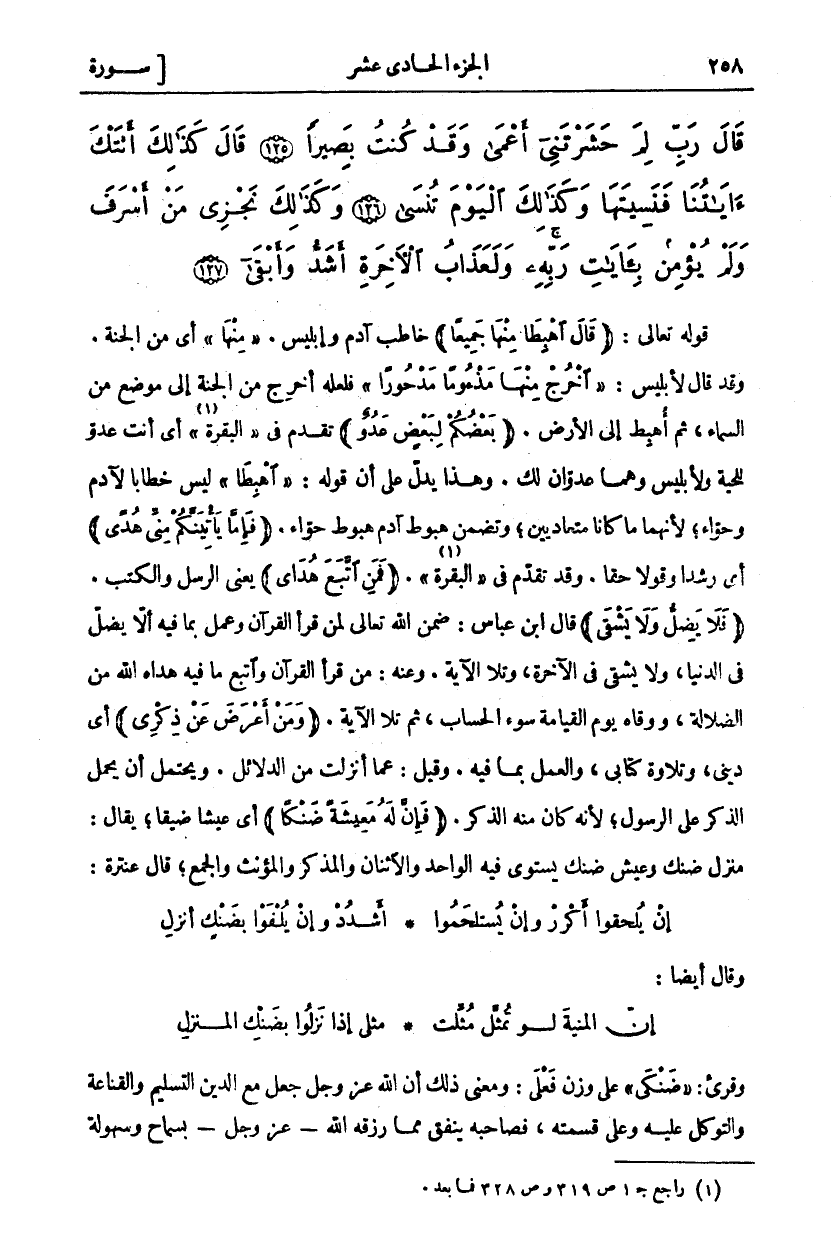 ٢٥٨ الجزء الحادى عشر [ ســورة
قَالَ رَبِّ لِمَ حَشَرْتَنِىٓ أَعْمَىٰ وَقَدْ كُنتُ بَصِيراً ﴿١٢٥﴾ قَالَ كَذَٰلِكَ أَتَتْكَ
ءَايَـٰتُنَا فَنَسِيتَهَا وَكَذَٰلِكَ ٱلْيَوْمَ تُنسَىٰ ﴿١٢٦﴾ وَكَذَٰلِكَ نَجْزِى مَنْ أَسْرَفَ
وَلَمْ يُؤْمِنۢ بِـَٔايَـٰتِ رَبِّهِۦ ۚ وَلَعَذَابُ ٱلْأَخِرَةِ أَشَدُّ وَأَبْقَىٰٓ ﴿١٢٧﴾
قوله تعالى : ﴿ قَالَ ٱهْبِطَا مِنْهَا جَمِيعًا ﴾ خاطب آدم وإبليس . « مِنْهَا » أى من الجنة .
وقد قال لأبليس : « ٱخْرُجْ مِنْهَـا مَذْءُومًا مَدْحُورًا » فلعله أخرج من الجنة إلى موضع من
السماء ، ثم أُهبط إلى الأرض . ﴿ بَعْضُكُمْ لِبَعْضٍ عَدُوٌّ ﴾ تقـدم فى « البقرة » (١) أى أنت عدوّ
للحية ولأبليس وهمـا عدوّان لك . وهـذا يدلّ على أن قوله : « ٱهْبِطَا » ليس خطابا لآدم
وحوّاء ؛ لأنهما ما كانا متعاديين ؛ وتضمن هبوط آدم هبوط حوّاء . ﴿ فَإِمَّا يَأْتِيَنَّكُمْ مِنِّى هُدًى ﴾
أى رشدا وقولا حقا . وقد تقدّم فى « البقرة » (١) . ﴿ فَمَنِ ٱتَّبَعَ هُدَاىَ ﴾ يعنى الرسل والكتب .
﴿ فَلَا يَضِلُّ وَلَا يَشْقَى ﴾ قال ابن عباس : ضمن الله تعالى لمن قرأ القرآن وعمل بما فيه ألّا يضلّ
فى الدنيا ، ولا يشقى فى الآخرة ، وتلا الآية . وعنه : من قرأ القرآن وٱتبع ما فيه هداه الله من
الضلالة ، ووقاه يوم القيامة سوء الحساب ، ثم تلا الآية . ﴿ وَمَنْ أَعْرَضَ عَنْ ذِكْرِى ﴾ أى
دينى ، وتلاوة كتابى ، والعمل بمـا فيه . وقيل : عما أنزلت من الدلائل . ويحتمل أن يحمل
الذكر على الرسول ؛ لأنه كان منه الذكر . ﴿ فَإِنَّ لَهُ مَعِيشَةً ضَنْكًا ﴾ أى عيشا ضيقا ؛ يقال :
منزل ضنك وعيش ضنك يستوى فيه الواحد والأثنان والمذكر والمؤنث والجمع ؛ قال عنترة :
إنْ يُلحقوا أَكْرُرْ وإنْ يُستلحَمُوا * أَشـدُدْ وإنْ يُلْفَوْا بِضَنْكٍ أنزلِ
وقال أيضا :
إنّ المنيةَ لــو تُمثَّل مُثِّلت * مثلى إذا نَزلُوا بِضَنكِ المـنزلِ
وقرئ : « ضَنْكَى » على وزن فَعْلَى : ومعنى ذلك أن الله عز وجل جعل مع الدين التسليم والقناعة
والتوكل عليـه وعلى قسمته ، فصاحبه ينفق ممـا رزقه الله — عز وجل — بسماح وسهولة
(١) راجع جـ ١ ص ٣١٩ وص ٣٢٨ فـا بعد .